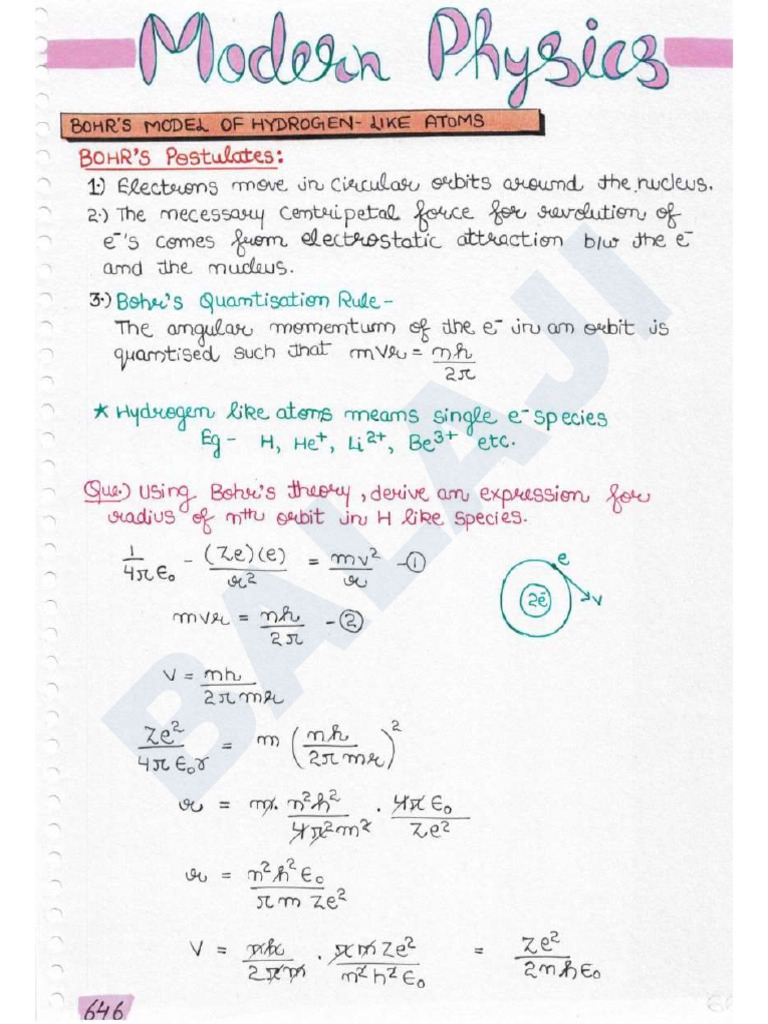 Modern Physics
BOHR'S MODEL OF HYDROGEN-LIKE ATOMS
BOHR'S Postulates:
1.) Electrons move in circular orbits around the nucleus.
2.) The necessary centripetal force for revolution of
e⁻'s comes from electrostatic attraction b/w the e⁻
and the nucleus.
3.) Bohr's Quantisation Rule-
The angular momentum of the e⁻ in an orbit is
quantised such that mvr = nh/2π
* Hydrogen like atoms means single e⁻ species
Eg- H, He⁺, Li²⁺, Be³⁺ etc.
Que.) Using Bohr's theory, derive an expression for
radius of nth orbit in H like species.
1/4πε₀ - (Ze)(e)/r² = mv²/r -①
e
Ze
v
mvr = nh/2π -②
v = nh/2πmr
Ze²/4πε₀r = m (nh/2πmr)²
r = m. n²h²/4π²m² . 4πε₀/Ze²
r = n²h²ε₀/πmZe²
v = nh/2πm . πmZe²/n²h²ε₀ = Ze²/2nhε₀
646
BALAJI